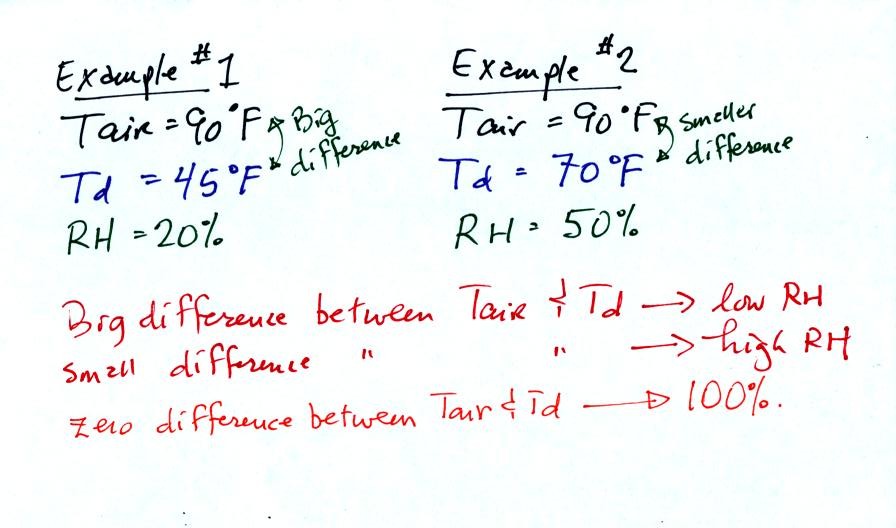 Example #1
Tair = 90°F Big difference
Td = 45°F
RH = 20%
Example #2
Tair = 90°F smaller difference
Td = 70°F
RH = 50%
Big difference between Tair & Td → low RH
small difference " " → high RH
zero difference between Tair & Td → 100%.